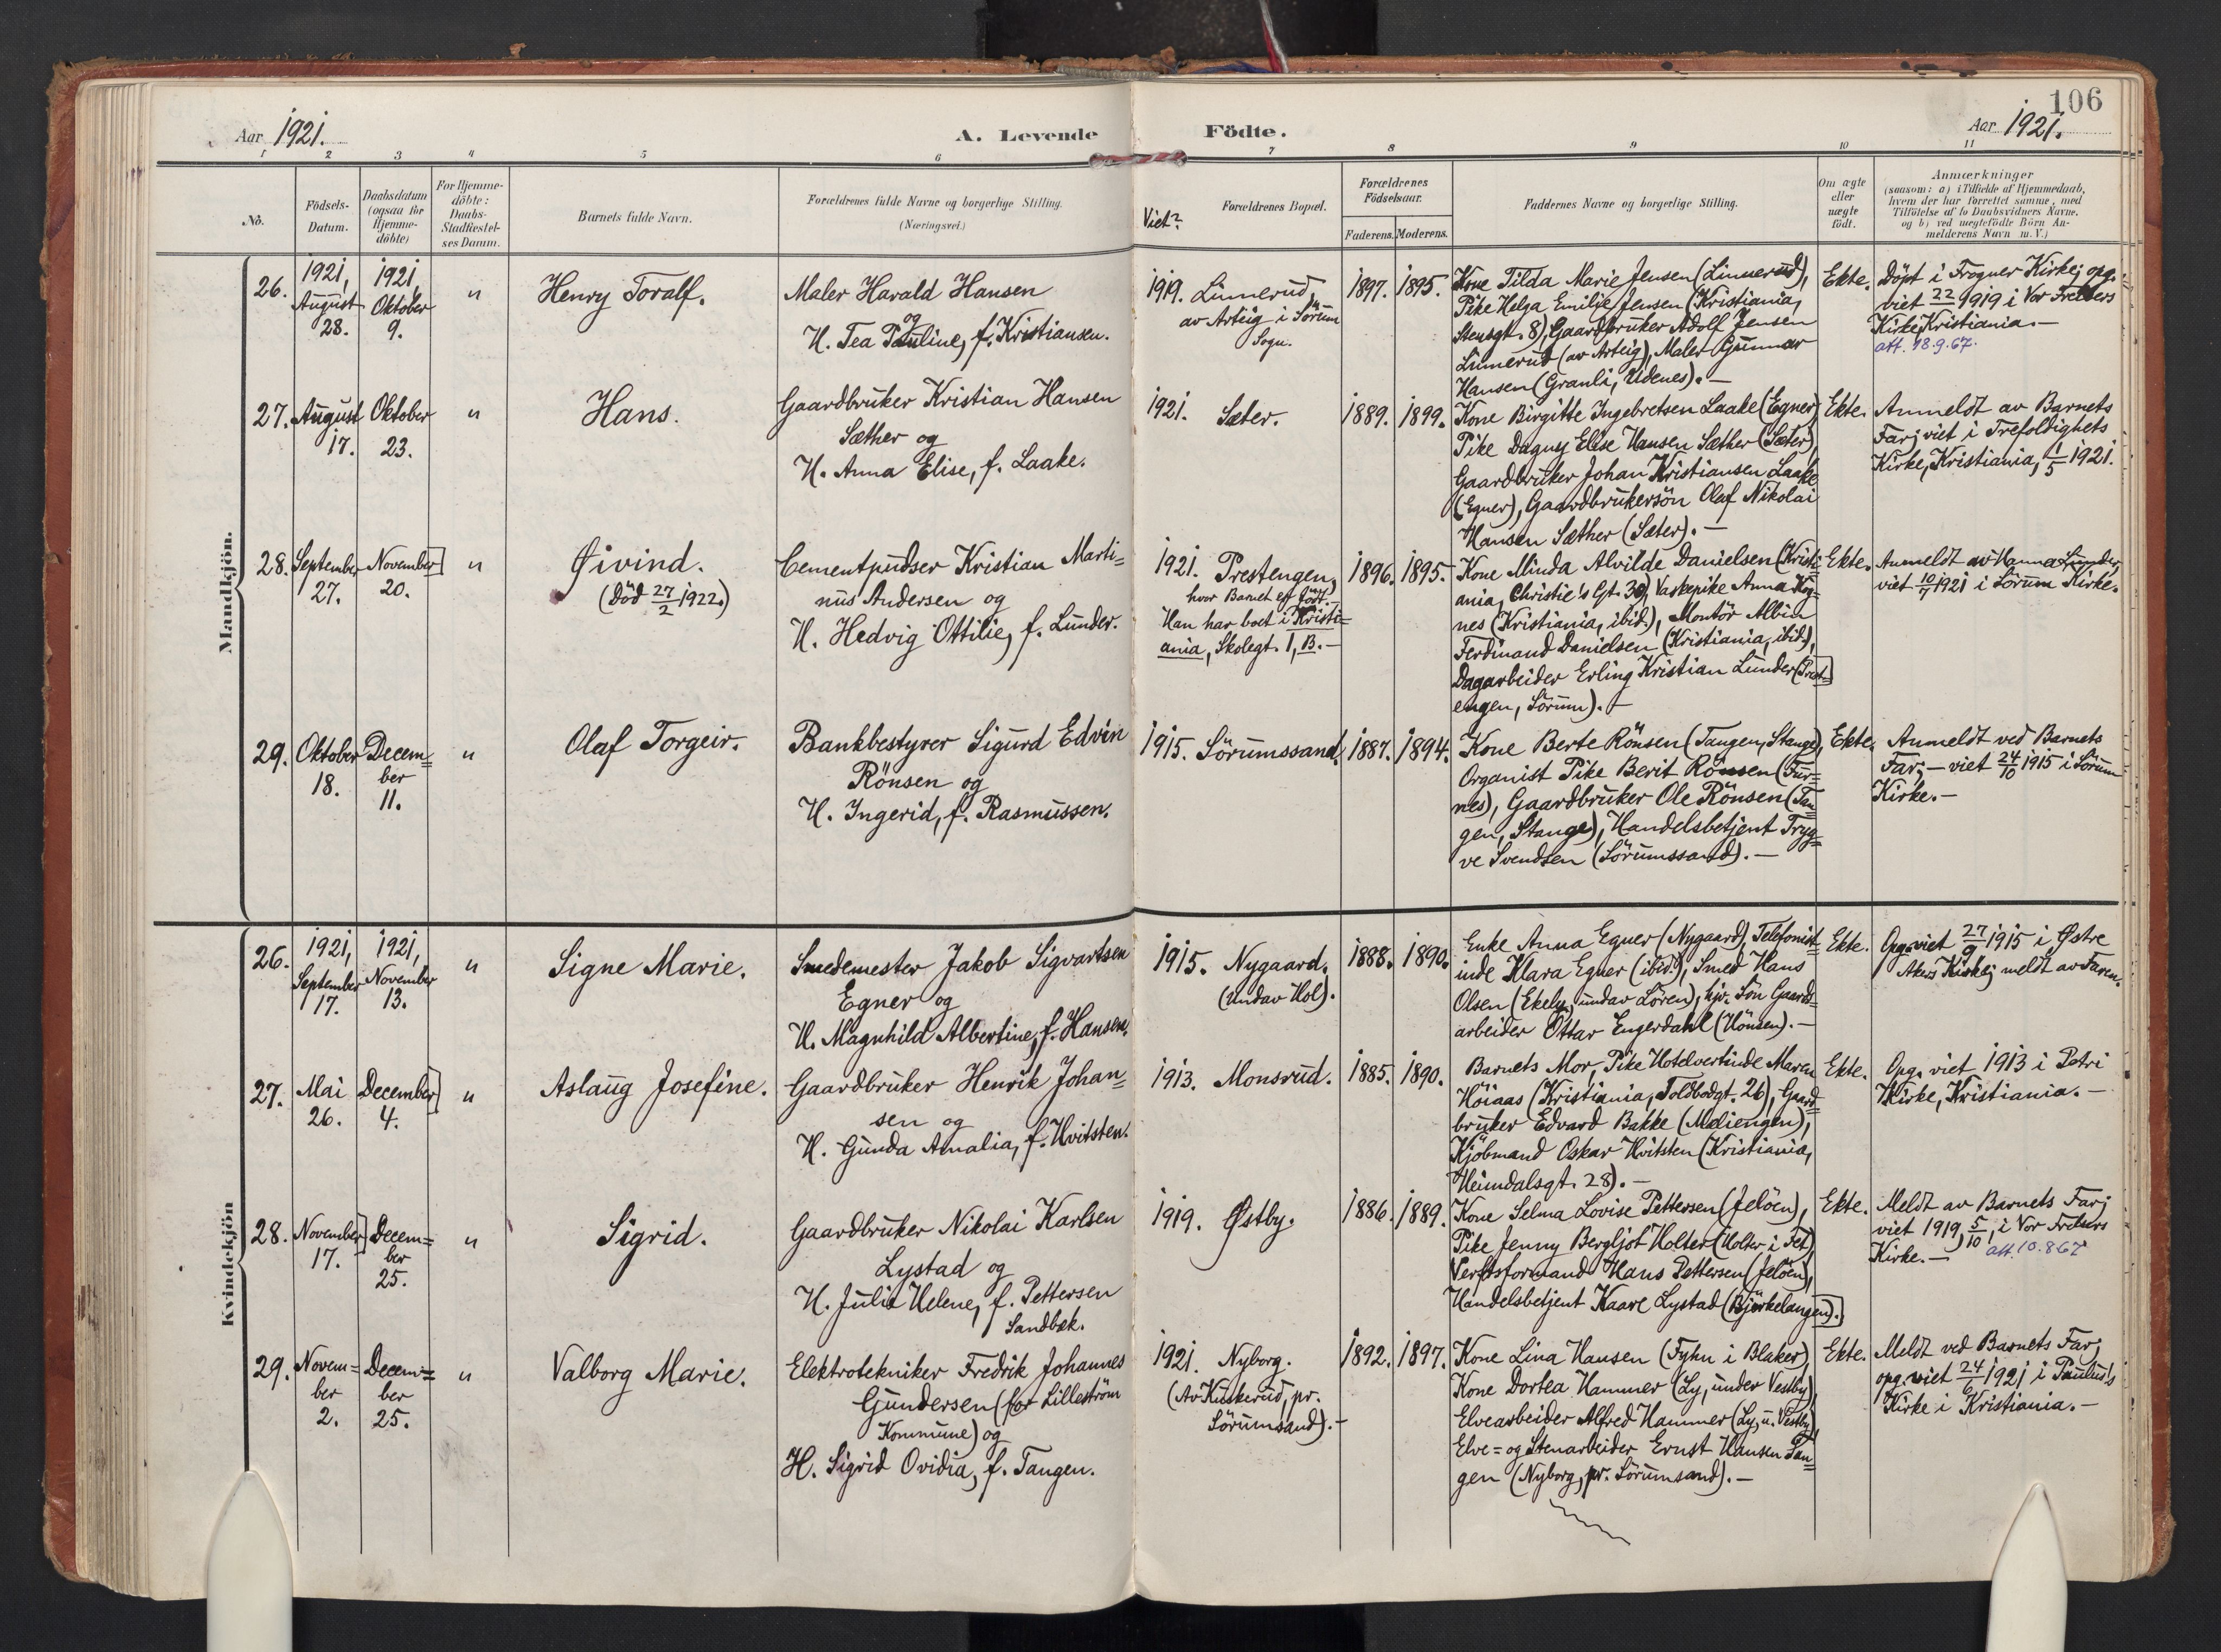 106
Aar 1921.
A. Levende Födte.
Aar 1921.
1 2 3 4 5 6 7 8 9 10 11
No.
Födsels-
Datum.
Daabsdatum
(ogsaa for
Hjemme-
döbte)
For Hjemme-
döbte:
Daabs-
Stadfæstel-
ses Datum.
Barnets fulde Navn.
Forældrenes fulde Navne og borgerlige Stilling.
(Næringsvei.)
Viet?
Forældrenes Bopæl.
Forældrenes
Födselsaar.
Faderens. Moderens.
Faddernes Navne og borgerlige Stilling.
Om ægte
eller
uægte
födt.
Anmærkninger
(saasom: a) i Tilfælde af Hjemmedaab,
hvem der har forrettet samme, med
Tilföielse af to Daabsvidners Navne.
og b) ved uægtefödte Börn An-
melderens Navn m. V.)
Mandkjön.
26.
1921,
August
28.
1921,
Oktober
9.
"
Henry Toralf.
Maler Harald Hansen
og
H. Tea Pauline, f. Kristiansen.
1919. Linnerud
av Arteig i Sörum
Sogn.
1897. 1895.
Kone Tilda Marie Jensen (Linnerud),
Pike Helga Emilie Jensen (Kristiania,
Stensgt. 8), Gaardbruker Adolf Jensen
Linnerud (av Arteig), Maler Gunnar
Hansen (Granli, Udenes). —
Ekte.
Döpt i Frogner Kirke; opg.
viet 22/9 1919 i Vor Frelsers
Kirke, Kristiania. —
att. 18.9.67.
27.
August
17.
Oktober
23.
"
Hans.
Gaardbruker Kristian Hansen
Sæther og
H. Anna Elise, f. Laake.
1921. Sæter.
1889. 1899.
Kone Birgitte Ingebretsen Laake (Egner),
Pike Dagny Elise Hansen Sæther (Sæter),
Gaardbruker Johan Kristiansen Laake
(Egner), Gaardbrukersön Olaf Nikolai
Hansen Sæther (Sæter). —
Ekte.
Anmeldt av Barnets
Far; viet i Trefoldighets
Kirke, Kristiania, 1/5 1921.
28.
September
27.
November
20.
"
Øivind.
(Död 27/2 1922.)
Cementpudser Kristian Marti=
nus Andersen og
H. Hedvig Ottilie, f. Lunder.
1921. Prestengen,
hvor Barnet er födt.
Han har boet i Kristi=
ania, Skolegt. 1, B. —
1896. 1895.
Kone Minda Alvilde Danielsen (Kristi=
ania, Christie's Gt. 30), Vaskepike Anna Hog=
nes (Kristiania, ibid.), Montör Albin
Ferdinand Danielsen (Kristiania, ibid.),
Dagarbeider Erling Kristian Lunder (Prest=
engen, Sörum). —
Ekte.
Anmeldt av Hanna Lunder,
viet 10/7 1921 i Sörum Kirke.
29.
Oktober
18.
Decem=
ber
11.
"
Olaf Torgeir.
Bankbestyrer Sigurd Edvin
Rönsen og
H. Ingerid, f. Rasmussen.
1915. Sörumssand.
1887. 1894.
Kone Berte Rönsen (Tangen, Stange),
Organist Pike Berit Rönsen (Fur=
nes), Gaardbruker Ole Rönsen (Tan=
gen, Stange), Handelsbetjent Tryg=
ve Svendsen (Sörumssand). —
Ekte.
Anmeldt ved Barnets
Far; — viet 24/10 1915 i Sörum
Kirke. —
Kvindekjön
26.
1921,
September
17.
1921,
November
13.
"
Signe Marie.
Smedemester Jakob Sigvartsen
Egner og
H. Magnhild Albertine, f. Hansen.
1915. Nygaard.
(undav Hol).
1888. 1890.
Enke Anna Egner (Nygaard), Telefonist=
inde Klara Egner (ibid.), Smed Hans
Olsen (Ekely, undav Lören), hjv. Sön Gaards=
arbeider Ottar Engerdahl (Hönsen). —
Ekte.
Opg. viet 27/9 1915 i Østre
Akers Kirke; meldt av Faren.
27.
Mai
26.
December
4.
"
Aslaug Josefine.
Gaardbruker Henrik Johan=
sen og
H. Gunda Amalia, f. Hvitsten.
1913. Monsrud.
1885. 1890.
Barnets Mor, Pike Hotelvertinde Maren
Höiaas (Kristiania, Toldbodgt. 26), Gaard=
bruker Edvard Bakke (Meliengen),
Kjöbmand Oskar Hvitsten (Kristiania,
Heimdalsgt. 28). —
Ekte.
Opg. viet 1913 i Petri
Kirke, Kristiania. —
28.
November
17.
Decem=
ber
25.
"
Sigrid.
Gaardbruker Nikolai Karlsen
Lystad og
H. Julie Helene, f. Pettersen
Sandbæk.
1919. Østby.
1886. 1889.
Kone Selma Lovise Pettersen (Jelöen),
Pike Jenny Bergljot Holter (Holter i Fet),
Verftsformand Hans Pettersen (Jelöen),
Handelsbetjent Kaare Lystad (Björkelangen).
Ekte.
Meldt av Barnets Far;
viet 1919, 5/10, i Vor Frelsers
Kirke. — att. 10.8.67
29.
Novem=
ber
2.
Decem=
ber
25.
"
Valborg Marie.
Elektrotekniker Fredrik Johannes
Gundersen (for Lilleström
Kommune) og
H. Sigrid Ovidia, f. Tangen.
1921. Nyborg.
(Av Kuskerud, pr.
Sörumsand). —
1892. 1897.
Kone Lina Hansen (Fyhn i Blaker),
Kone Dortea Hammer (Ly, under Vestby),
Elvearbeider Alfred Hammer (Ly, u. Vestby),
Elve= og Stenarbeider Ernst Hansen Tan=
gen (Nyborg, pr. Sörumsand). —
Ekte.
Meldt ved Barnets Far;
opg. viet 24/6 1921 i Paulus's
Kirke i Kristiania. —